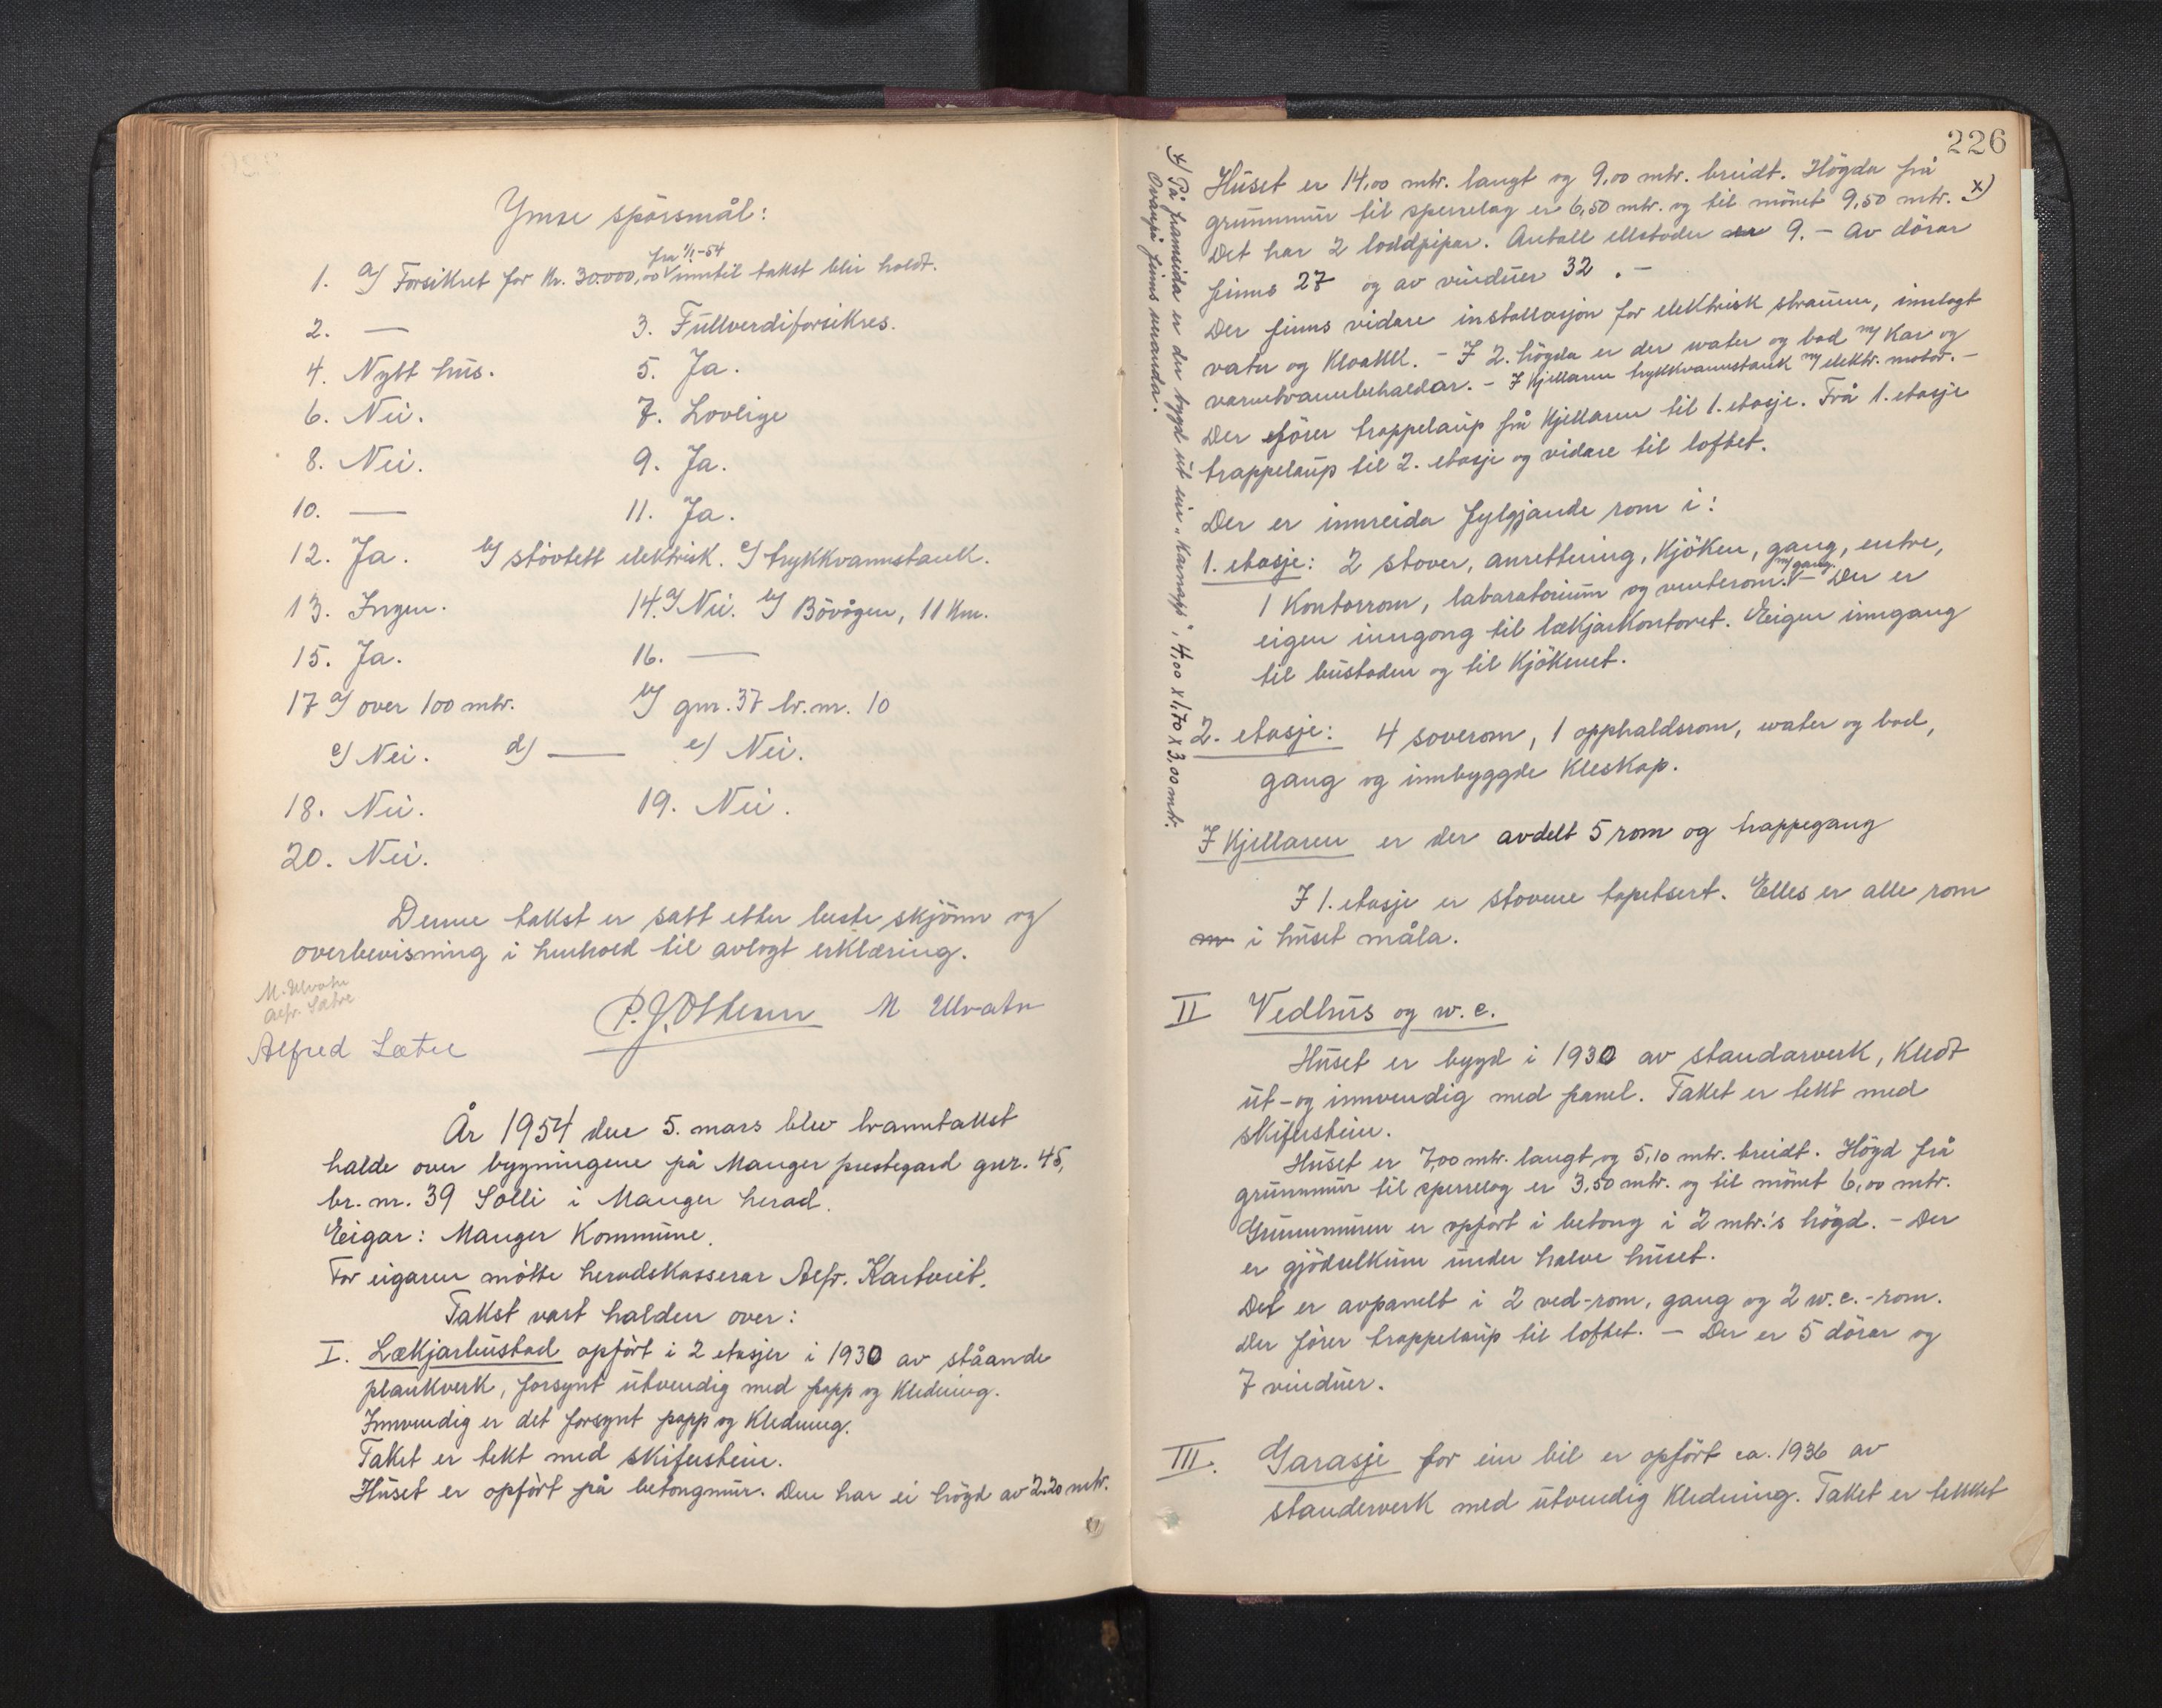 Ymse spörsmål:
1. a) Forsikret for kr. 30.000,00 fra 1/1-54 inntil takst blir holdt.
2. — 3. Fullverdiforsikres.
4. Nytt hus. 5. Ja.
6. Nei. 7. Lovlige
8. Nei. 9. Ja.
10. — 11. Ja.
12. Ja. b) stövtett elektrisk. c) trykkvannstank.
13. Ingen. 14. a) Nei. b) Bövågen, 11 km.
15. Ja. 16. —
17 a) over 100 mtr. b) gnr. 37 br. nr. 10
c) Nei. d) — e) Nei.
18. Nei. 19. Nei.
20. Nei.
Denne takst er satt etter beste skjönn og
overbevisning i henhold til avlagt erklæring.
M. Ulvatn
Alfr. Sætre
M Ulvatn
Alfred Sætre
År 1954 den 5. mars blev branntakst
halde over bygningene på Manger prestegard gnr. 45,
br. nr. 39 Solli i Manger herad.
Eigar: Manger Kommune.
For eigaren møtte heradskasserar Alfr. Kartveit.
Takst vart halden over:
I. Lækjarbustad opfört i 2 etasjer i 1930 av ståande
plankverk, forsynt utvendig med papp og kledning.
Innvendig er det forsynt papp og kledning.
Taket er tekt med skiferstein.
Huset er opfört på betongmur. Den har ei högd av 2.20 mtr.
226
Huset er 14,00 mtr. langt og 9,00 mtr. breidt. Högda frå
grunnmur til sperrelag er 6,50 mtr. og til mönet 9,50 mtr. x)
Det har 2 loddpipar. Antall eldstader er 9. — Av dörar
finns 27 og av vinduer 32. —
Der finns vidare installasjon for elektrisk straum, innlagt
vatn og kloakk. — I 2. högda er der water og bad m/ kar og
varmtvannbehaldar. — I kjellaren trykkvannstank m/ elektr. motor. —
Der förer trappelaup frå kjellaren til 1. etasje. Frå 1. etasje
trappelaup til 2. etasje og vidare til loftet.
Der er innreida fylgjande rom i:
1. etasje: 2 stover, anrettning, kjöken, gang, entre,
1 kontorrom, labaratorium og venterom m/ gang. — Der er
eigen inngong til lækjarkontoret. Eigen inngang
til bustaden og til kjökenet.
2. etasje: 4 soverom, 1 opphaldsrom, water og bad,
gang og innbyggde kleskap.
I kjellaren er der avdelt 5 rom og trappegang
I 1. etasje er stovene tapetsert. Elles er alle rom
i huset måla.
II Vedhus og w.c.
Huset er bygd i 1930 av standarverk, kledt
ut- og innvendig med panel. Taket er tekt med
skiferstein.
Huset er 7,00 mtr. langt og 5,10 mtr. breidt. Högd frå
grunnmur til sperrelag er 3,50 mtr. og til mönet 6,00 mtr.
Grunnmuren er opfört i betong i 2 mtr.'s högd. — Der
er gjödselkum under halve huset.
Det er avpanelt i 2 ved-rom, gang og 2 w.c.-rom.
Der förer trappelaup til loftet. — Der er 5 dörar og
7 vinduer.
III. Garasje for ein bil er opfört ca. 1936 av
standerverk med utvendig kledning. Taket er tekket
x) På framsida er der bygd ut ein „Karnapp", 4,00 x 1,70 x 3,00 mtr.
Ovanpå finns veranda.